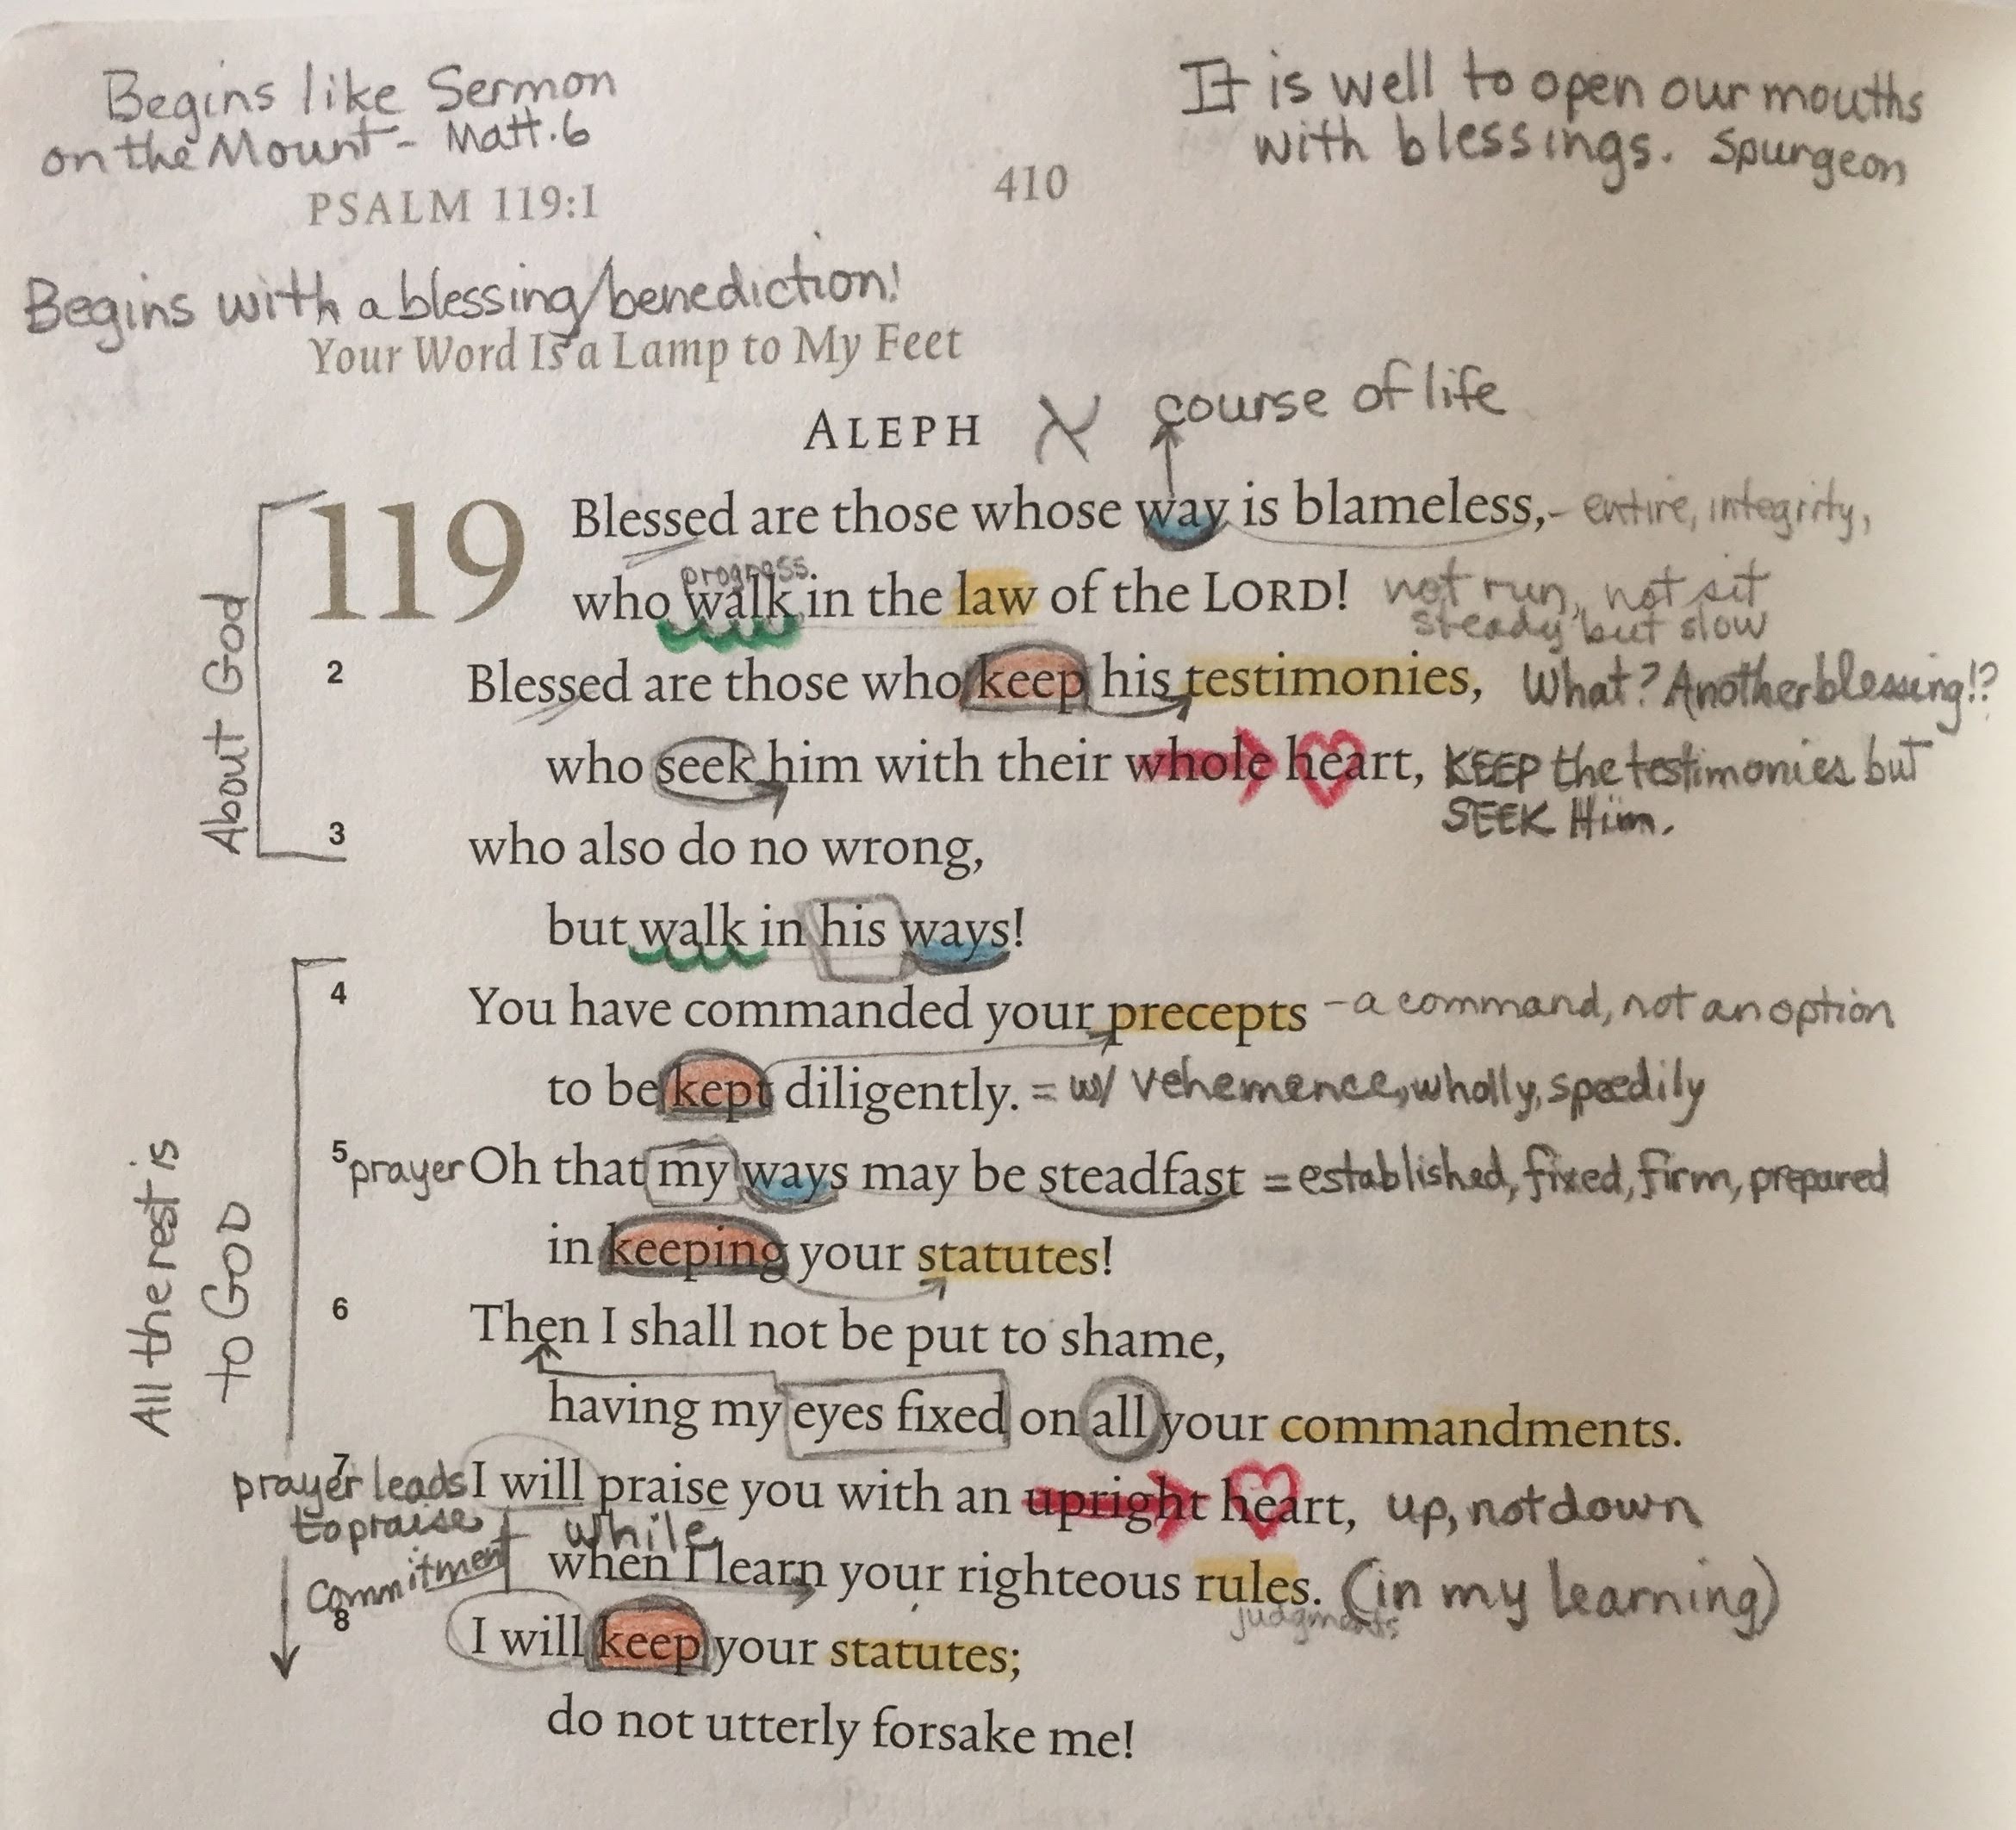 Begins like Sermon
on the Mount - Matt. 6
It is well to open our mouths
with blessings. Spurgeon
PSALM 119:1
410
Begins with a blessing/benediction!
Your Word Is a Lamp to My Feet
course of life
ALEPH א
119 Blessed are those whose way is blameless, - entire, integrity,
progress
who walk in the law of the LORD! not run, not sit
steady but slow
2 Blessed are those who keep his testimonies, What? Another blessing!?
who seek him with their whole heart, KEEP the testimonies but
SEEK Him.
About God
3 who also do no wrong,
but walk in his ways!
4 You have commanded your precepts - a command, not an option
to be kept diligently. = w/ vehemence, wholly, speedily
5 prayer Oh that my ways may be steadfast = established, fixed, firm, prepared
in keeping your statutes!
All the rest is
to GOD
6 Then I shall not be put to shame,
having my eyes fixed on all your commandments.
7 prayer leads I will praise you with an upright heart, up, not down
to praise
while
when I learn your righteous rules. (in my learning)
judgments
commitment
8 I will keep your statutes;
do not utterly forsake me!